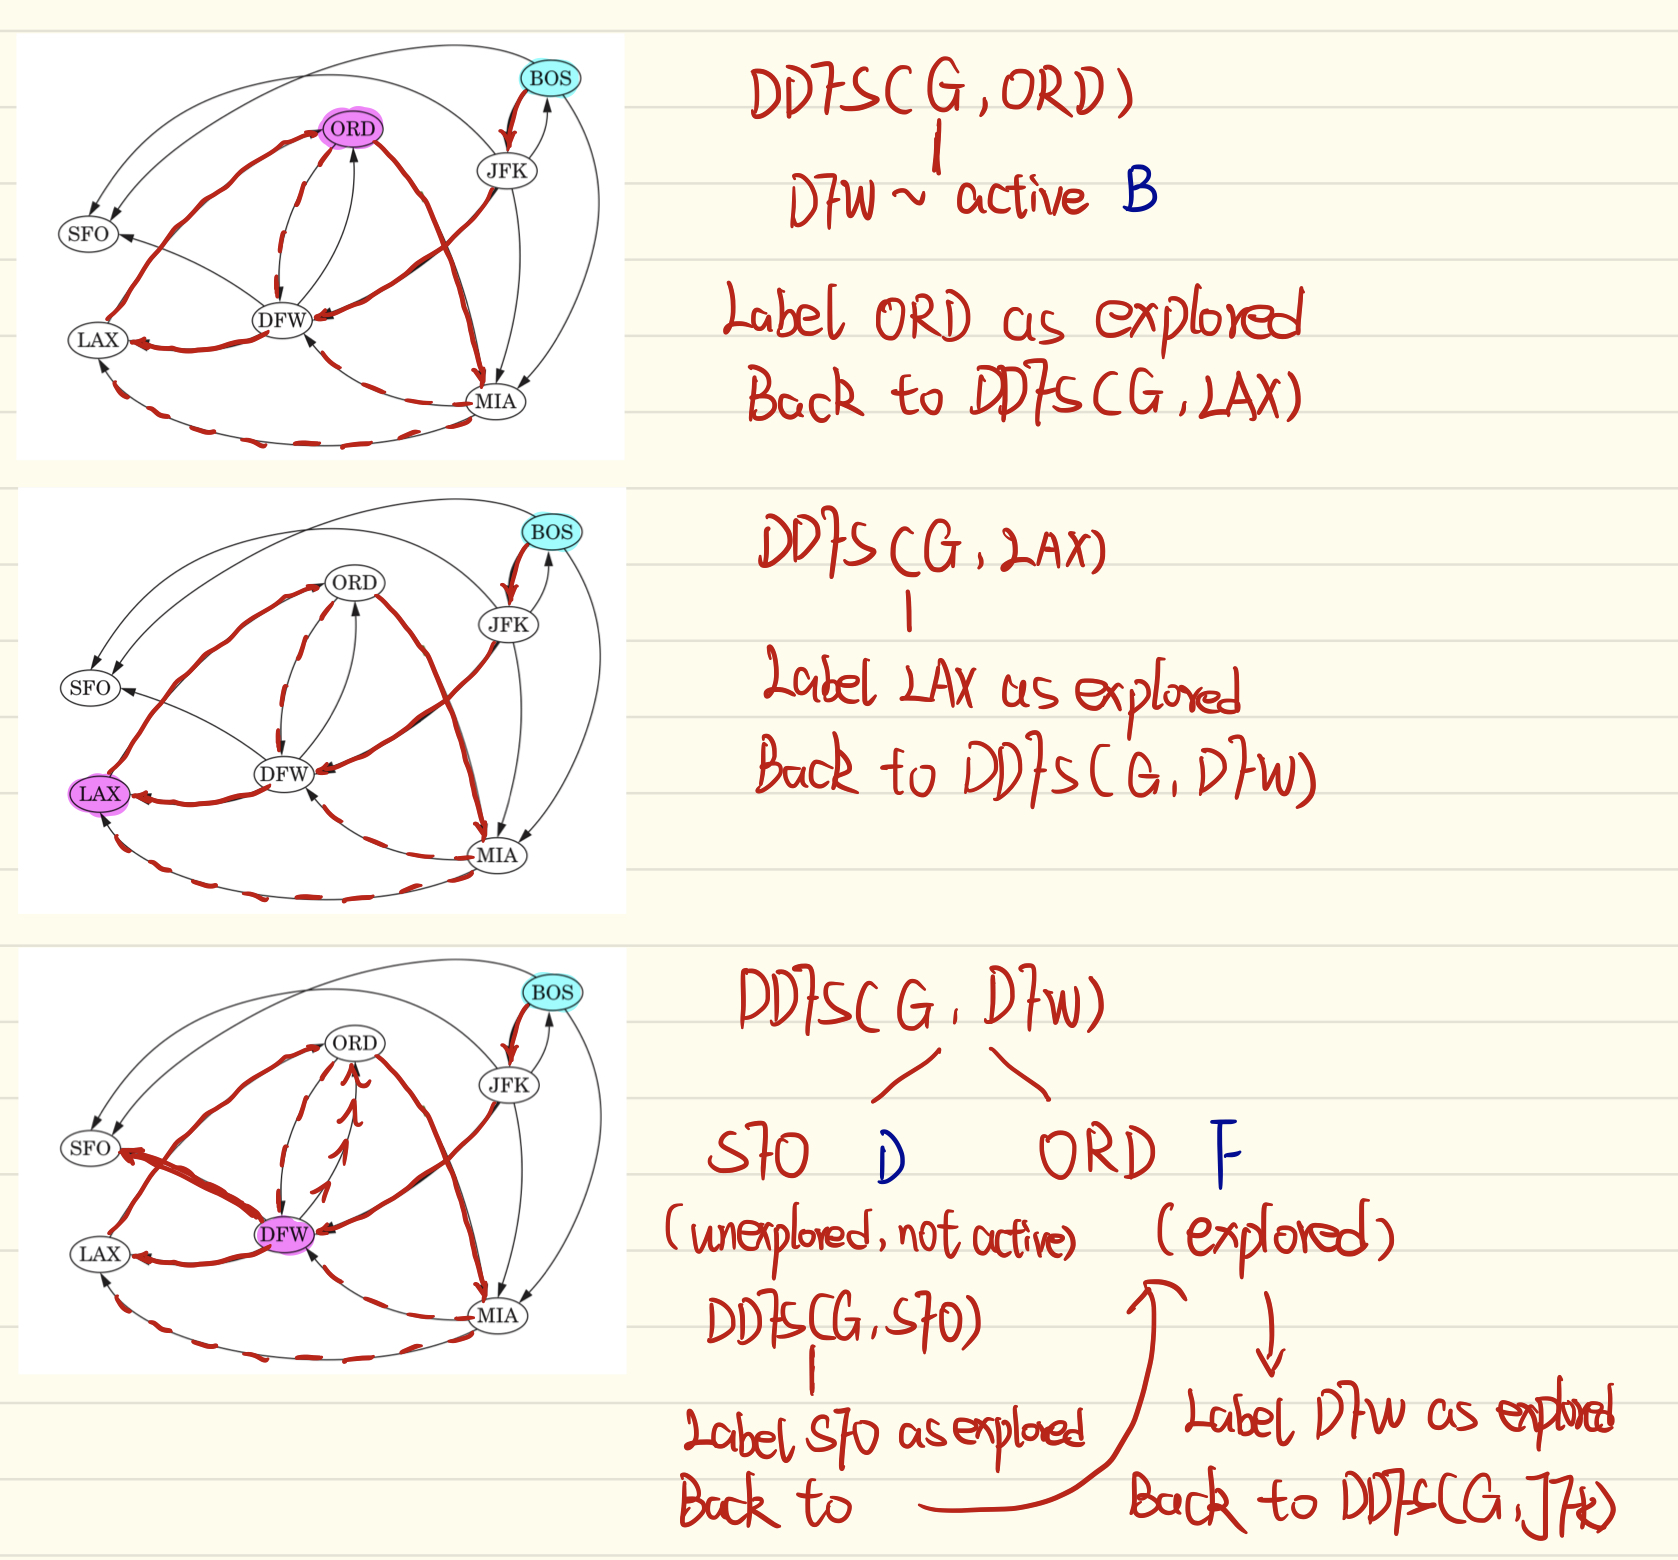 BOS
ORD
JFK
SFO
DFW
LAX
MIA
DDFS(G, ORD)
DFW ~ active B
Label ORD as explored
Back to DDFS(G, LAX)
BOS
ORD
JFK
SFO
DFW
LAX
MIA
DDFS(G, LAX)
Label LAX as explored
Back to DDFS(G, DFW)
BOS
ORD
JFK
SFO
DFW
LAX
MIA
DDFS(G, DFW)
SFO D ORD F
(unexplored, not active) (explored)
DDFS(G, SFO)
Label SFO as explored
Back to
Label DFW as explored
Back to DDFS(G, JFK)